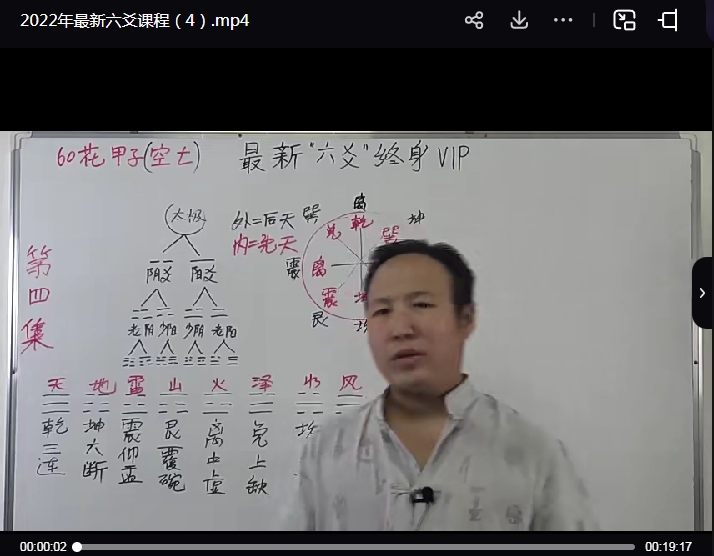 2022年最新六爻课程（4）.mp4
60花甲子(空亡) 最新"六爻"终身VIP
第四集
太极
阴爻 阳爻
老阴 少阳 少阴 老阳
外=后天
内=先天
离 坤
巽 兑 乾 巽
震 离
艮 震 坎
天 地 雷 山 火 泽 水 风
乾三连
坤六断
震仰盂
艮覆碗
离中虚
兑上缺
坎
00:00:02
00:19:17